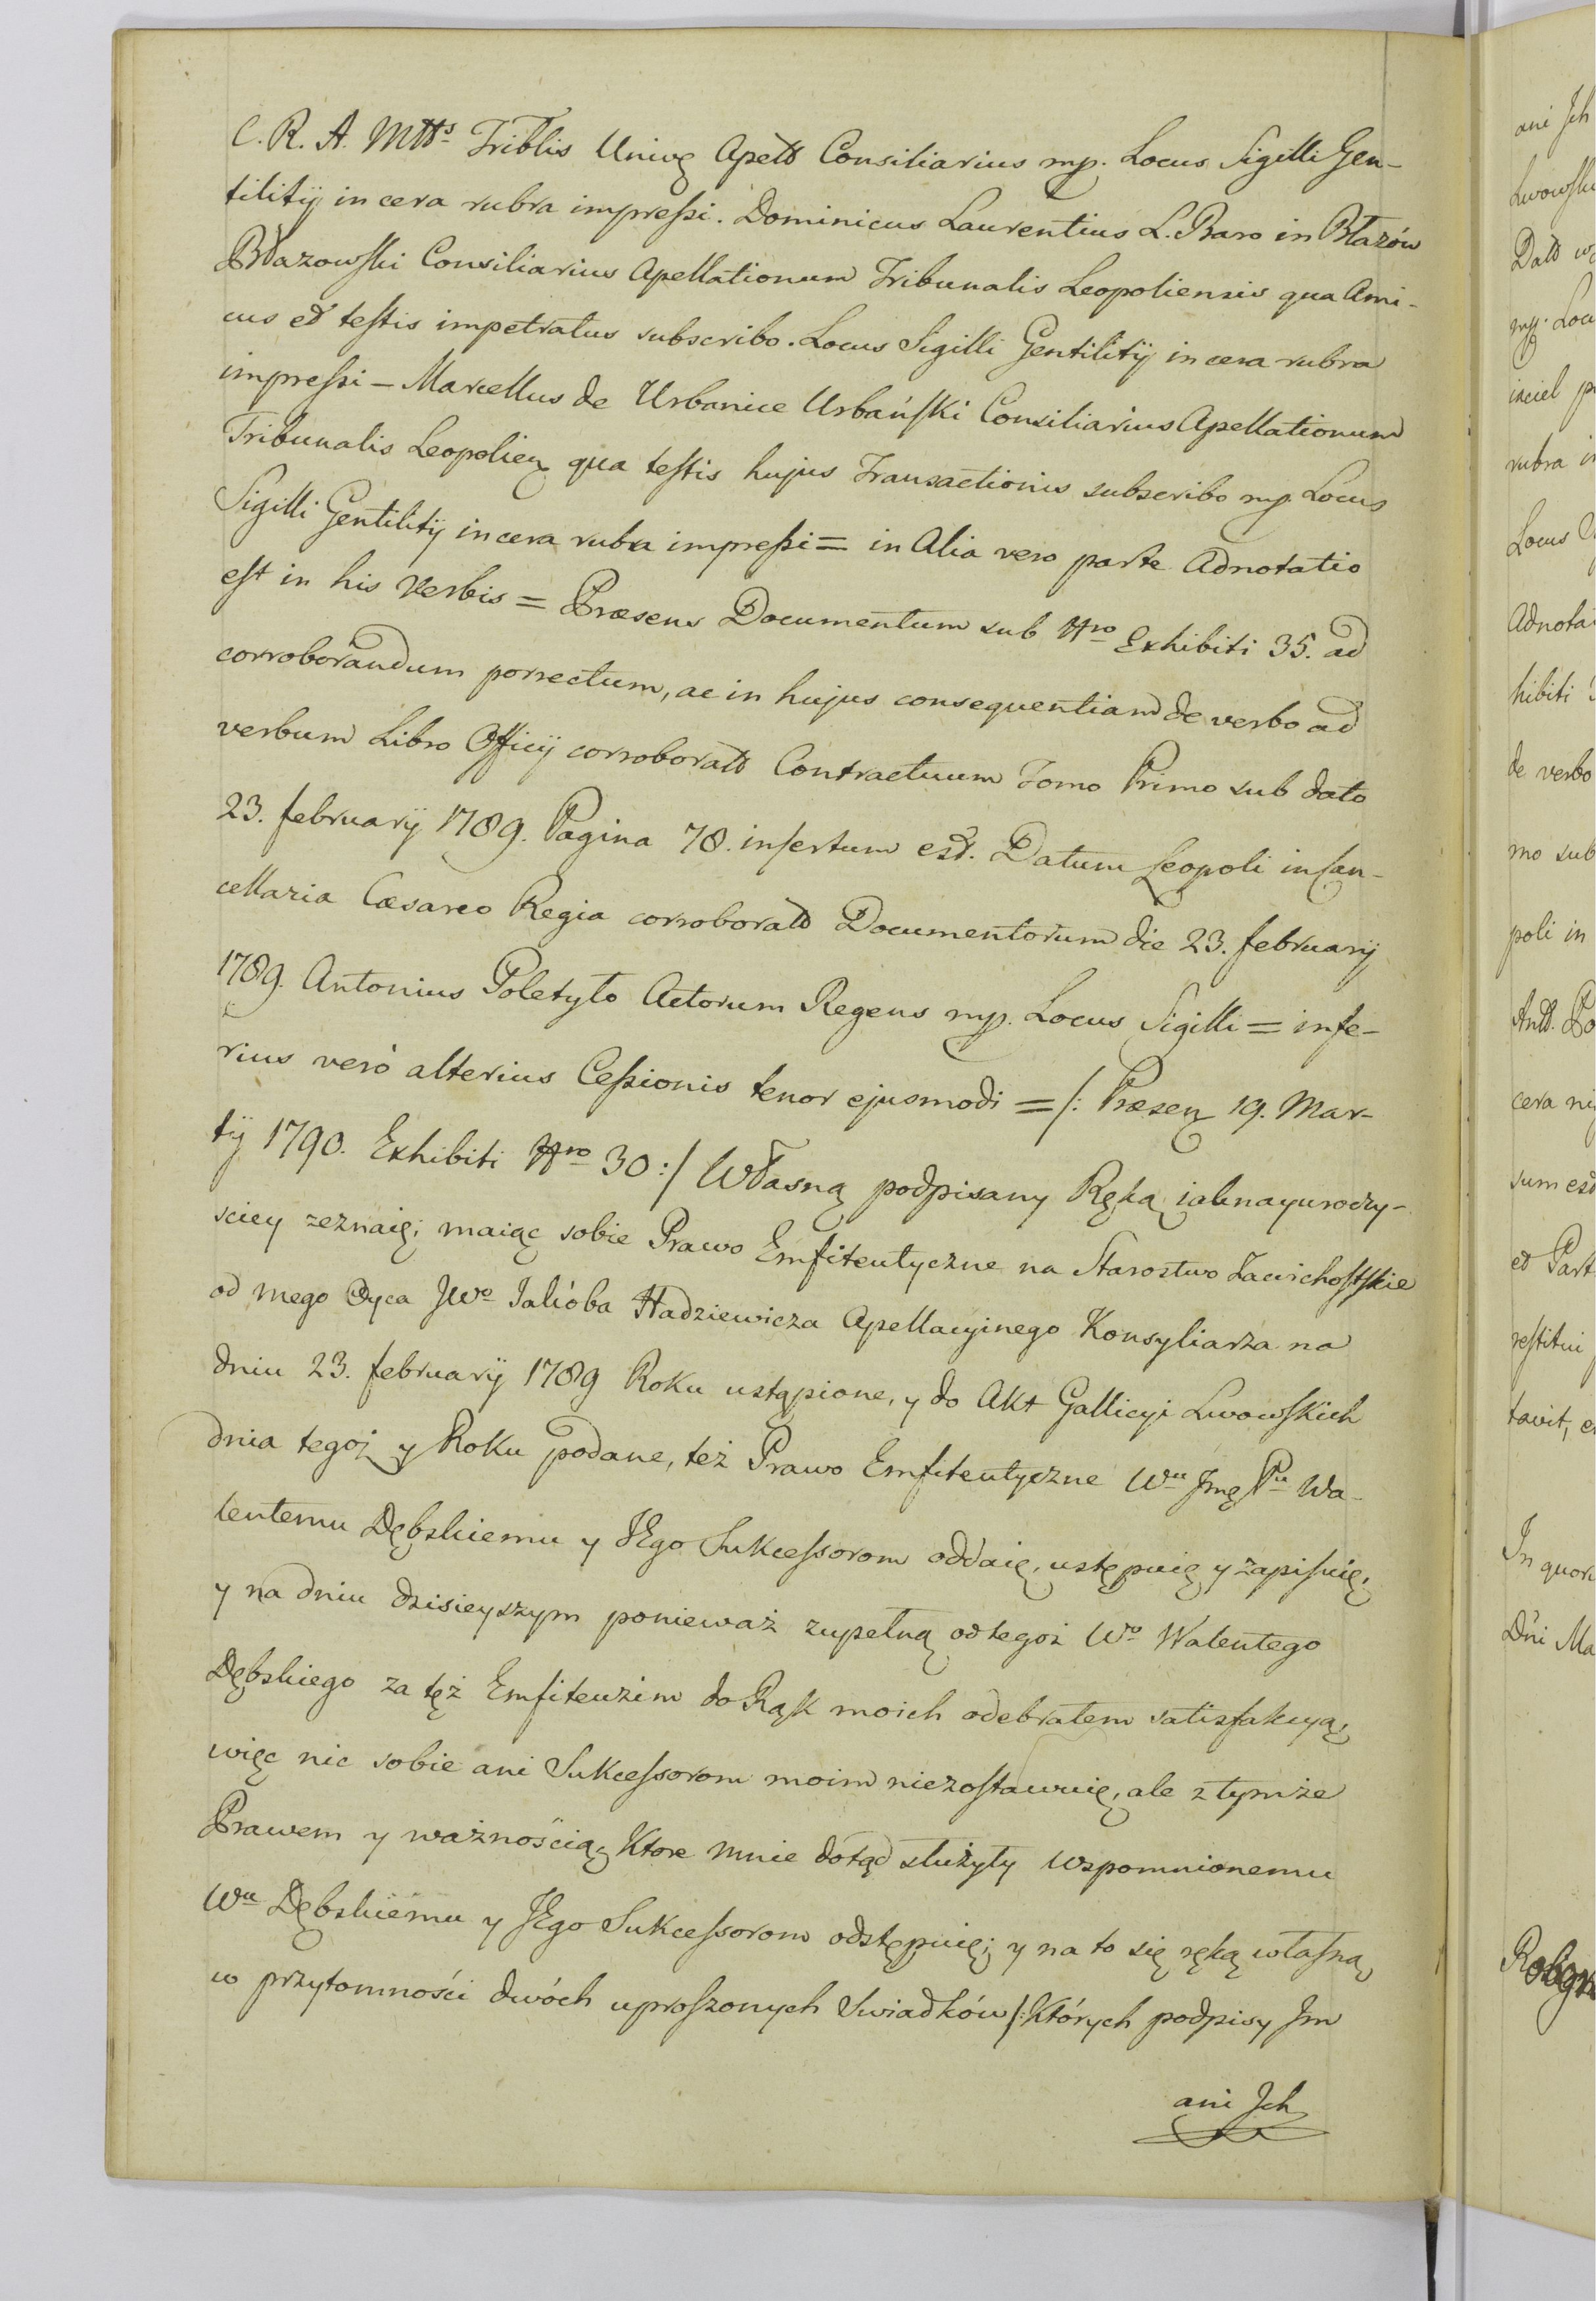 C. R. A. Mtts Triblis Univę Apelld Consiliarius mp. Locus Sigilli Gen-
tilitij in cera rubra impreſsi. Dominicus Laurentius L. Baro in Błazów
Błazowſki Consiliarius Apellationum Tribunalis Leopoliensis qua Ami-
cus et teſtis impetratus subscribo. Locus Sigilli Gentilitij in cera rubra
impreſsi – Marcellus de Urbanice Urbańſki Consiliarius Apellationum
Tribunalis Leopolien qua teſtis hujus Transactionis subscribo mp. Locus
Sigilli Gentilitij in cera rubra impreſsi = in Alia vero parte Adnotatio
eſt in his Verbis = Præsens Documentum sub Nro Exhibiti 35. ad
corroborandum porrectum, ac in hujus consequentiam de verbo ad
verbum Libro Officij corroborald Contractuum Tomo Primo sub dato
23. februarij 1789. Pagina 78. inſertum est. Datum Leopoli in Can-
cellaria Cæsareo Regia corroborald Documentorum die 23. februarij
1789. Antonius Poletyło Actorum Regens mp. Locus Sigilli = infe-
rius verò alterius Ceſsionis tenor ejusmodi = /: Præsen 19. Mar-
tij 1790. Exhibiti Nro 30 :/ Własną podpisany Ręką iaknayuroczy-
sciey zeznaię; maiąc sobie Prawo Emfiteutyczne na Staroſtwo Zawichoſtſkie
od mego Oyca JWo Jakóba Hadziewicza Apellacyinego Konsyliarza na
dniu 23. februarij 1789 Roku ustąpione, y do Akt Gallicyi Lwowſkich
dnia tegoż y Roku podane, też Prawo Emfiteutyczne Wu Jmę Pu Wa-
lentemu Dębskiemu y JEgo Sukceſsorom oddaię, ustępuię y zapiſuię;
y na dniu dzisieyszym ponieważ zupełną od tegoż Wo Walentego
Dębskiego za też Emfiteuzim do Rąk moich odebrałem satisfakcyą;
więc nic sobie ani Sukceſsorom moim niezoſtawuię, ale z tymże
Prawem y ważnością, Ktore mnie dotąd służyły Wspomnionemu
Wu Dębskiemu y JEgo Sukceſsorom odstępuię; y na to się ręką właſną
w przytomności dwóch uproſzonych Swiadków /: Których podpisy Jm
ani Jch